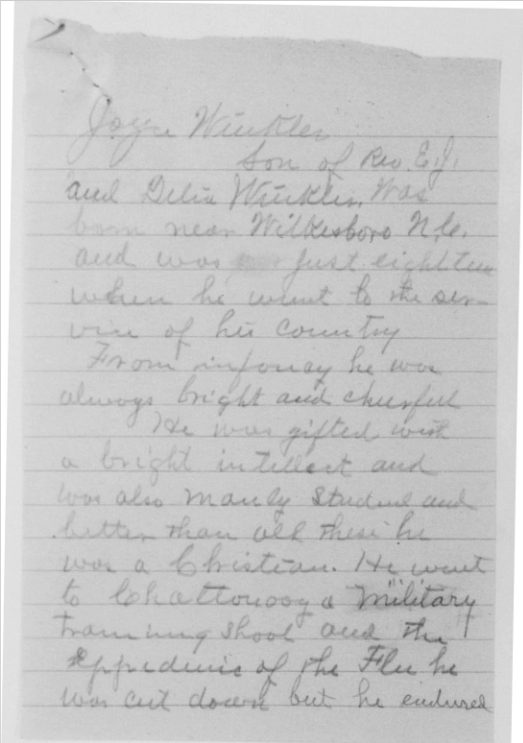 Joyce Winkler
Son of Rev. E.J.
and Delia Winkler. Was
born near Wilkesboro N.C.
and was just eighteen
when he went to the ser-
vice of his country
From infancy he was
always bright and cheerful
He was gifted with
a bright intellect and
was also manly Student and
better than all these he
was a Christian. He went
to Chattonooga Military
training shool and the
Eppedemic of the Flu he
was cut down but he endured